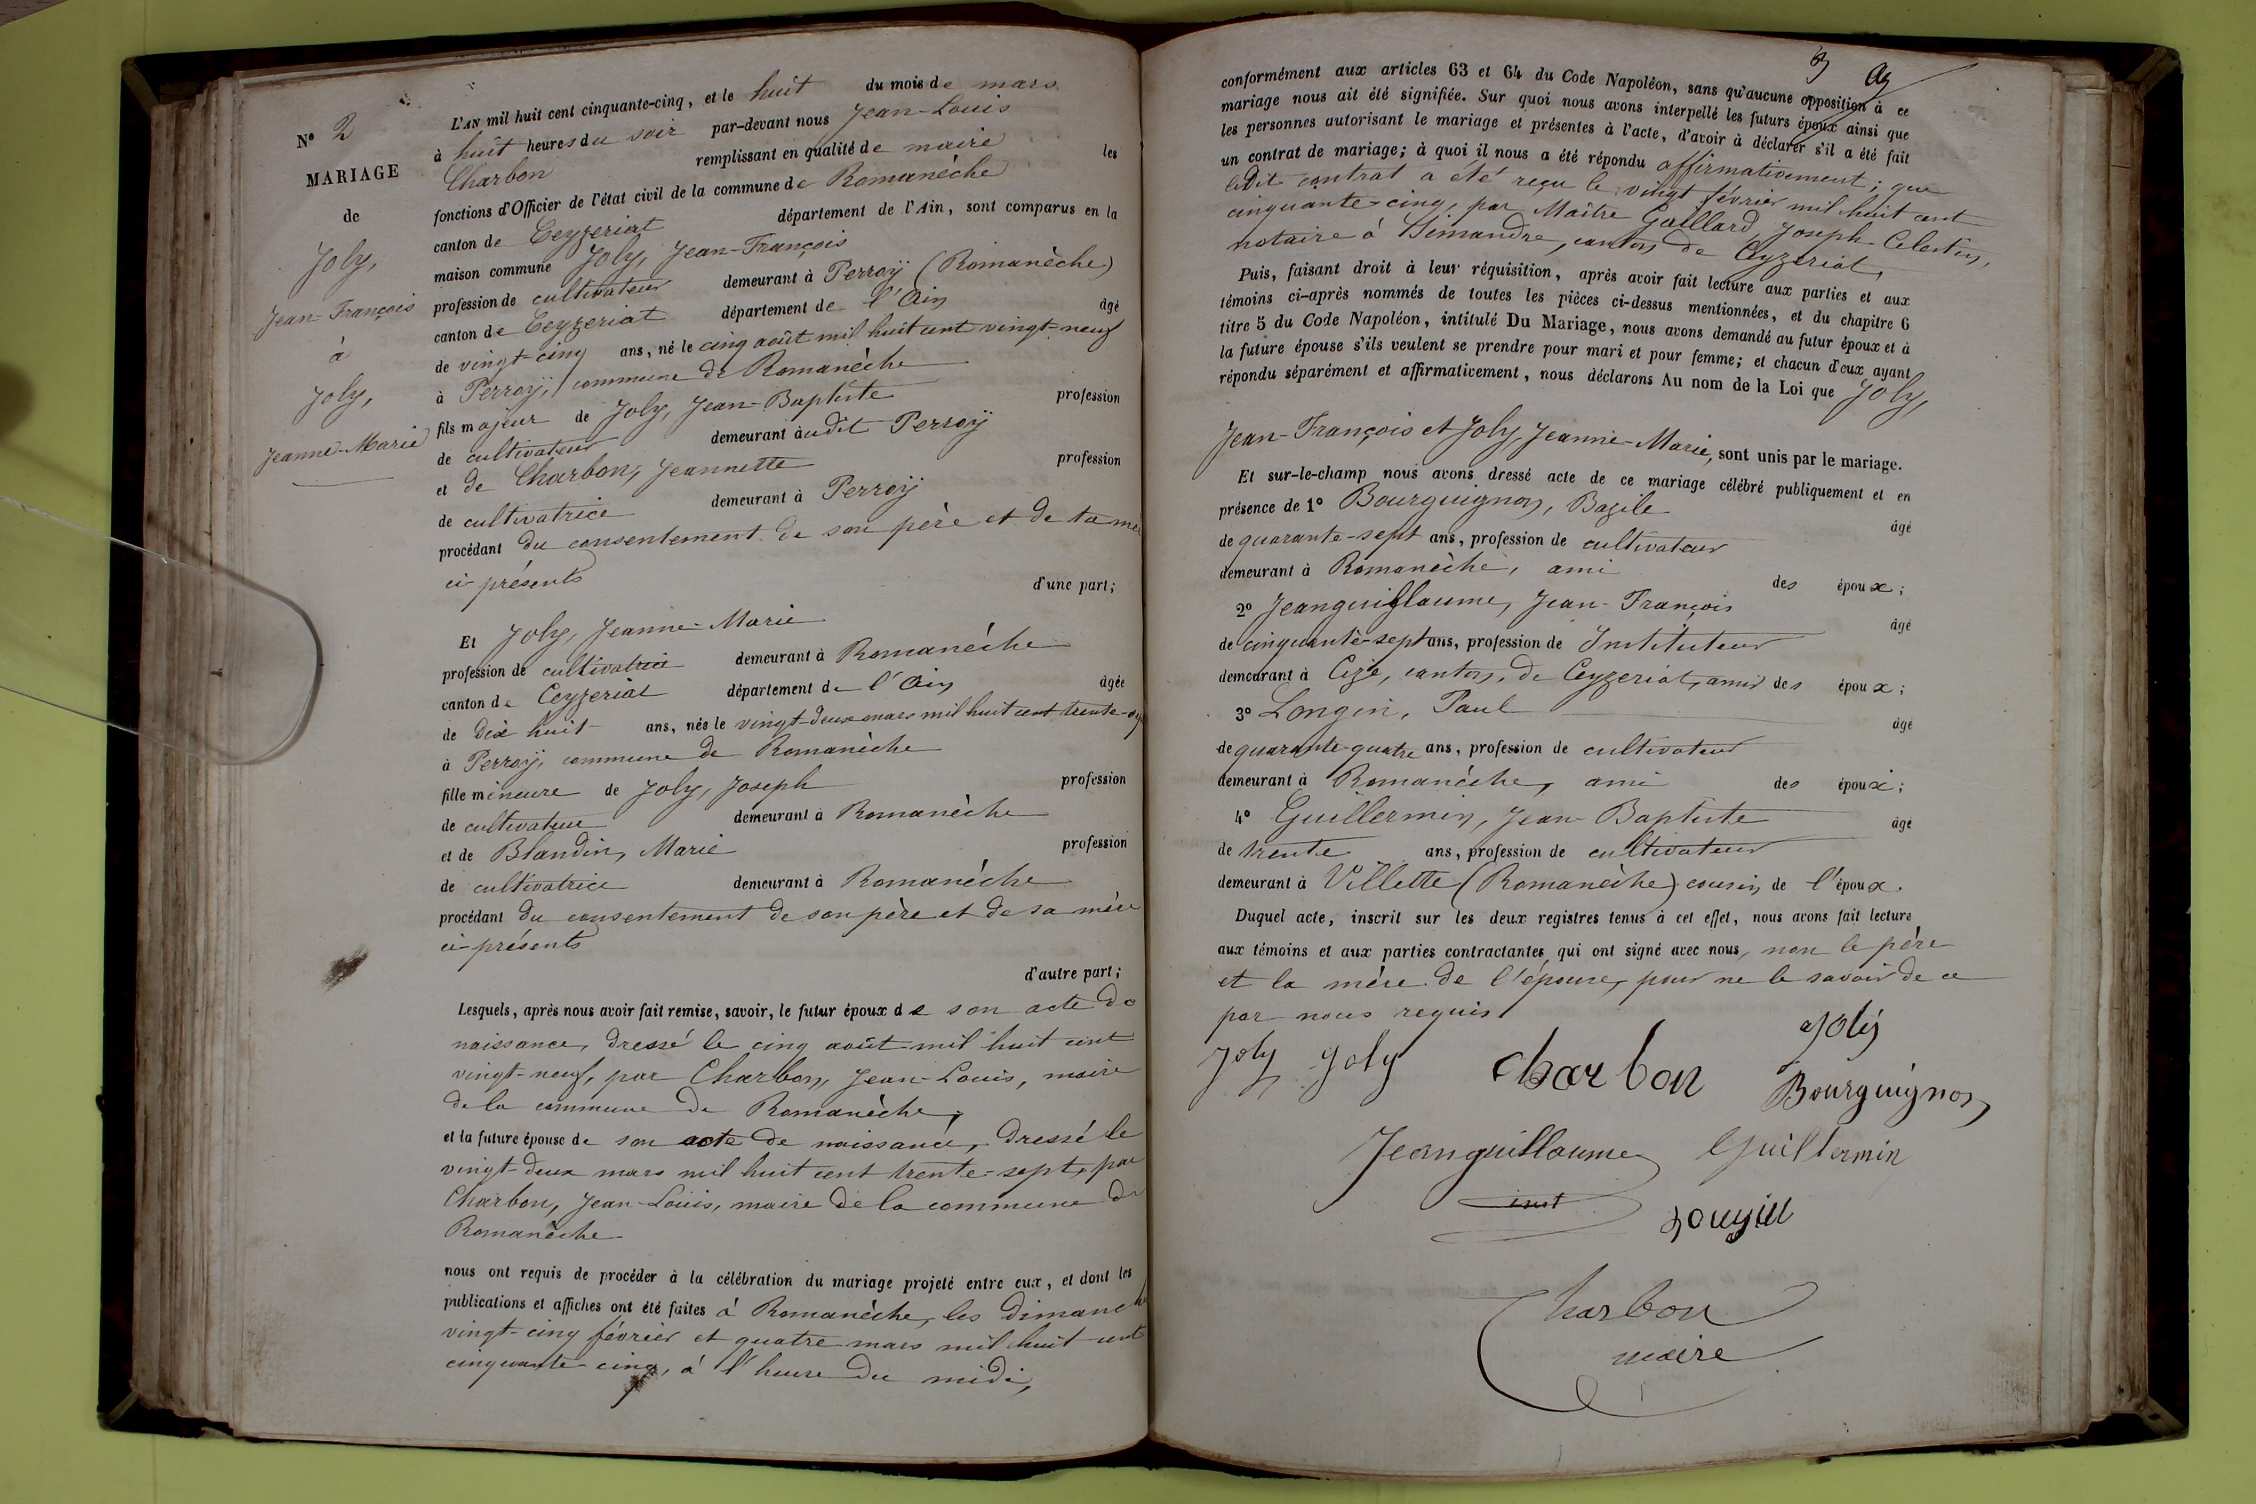 N° 2
MARIAGE
de
Joly,
Jean-François
à
Joly,
Jeanne-Marie
L'AN mil huit cent cinquante-cinq, et le huit du mois de mars
à huit heures du soir par-devant nous Jean-Louis
Charbon remplissant en qualité de maire les
fonctions d'Officier de l'état civil de la commune de Romanèche
canton de Ceyzeriat département de l'Ain, sont comparus en la
maison commune Joly, Jean-François
profession de cultivateur demeurant à Perroÿ (Romanèche)
canton de Ceyzeriat département de l'Ain âgé
de vingt-cinq ans, né le cinq août mil huit cent vingt-neuf
à Perroÿ, commune de Romanèche
fils majeur de Joly, Jean-Baptiste profession
de cultivateur demeurant audit Perroÿ
et de Charbon, Jeannette profession
de cultivatrice demeurant à Perroÿ
procédant du consentement de son père et de sa mère
ci-présents d'une part;
Et Joly, Jeanne-Marie
profession de cultivatrice demeurant à Romanèche
canton de Ceyzeriat département de l'Ain âgée
de dix huit ans, née le vingt-deux mars mil huit cent trente-
à Perroÿ, commune de Romanèche
fille mineure de Joly, Joseph profession
de cultivateur demeurant à Romanèche
et de Blandin, Marie profession
de cultivatrice demeurant à Romanèche
procédant du consentement de son père et de sa mère
ci-présents
d'autre part;
Lesquels, après nous avoir fait remise, savoir, le futur époux de son acte de
naissance, dressé le cinq août mil huit cent
vingt-neuf, par Charbon, Jean-Louis, maire
de la commune de Romanèche,
et la future épouse de son acte de naissance, dressé le
vingt-deux mars mil huit cent trente-sept, par
Charbon, Jean-Louis, maire de la commune de
Romanèche
nous ont requis de procéder à la célébration du mariage projeté entre eux, et dont les
publications et affiches ont été faites à Romanèche, les dimanche
vingt-cinq février et quatre mars mil huit cent
cinquante-cinq, à l'heure de midi,
3
conformément aux articles 63 et 64 du Code Napoléon, sans qu'aucune opposition à ce
mariage nous ait été signifiée. Sur quoi nous avons interpellé les futurs époux ainsi que
les personnes autorisant le mariage et présentes à l'acte, d'avoir à déclarer s'il a été fait
un contrat de mariage; à quoi il nous a été répondu affirmativement; que
ledit contrat a été reçu le vingt février mil huit cent
cinquante-cinq, par Maître Gaillard, Joseph-Célestin,
notaire à Simandre, canton de Ceyzeriat,
Puis, faisant droit à leur réquisition, après avoir fait lecture aux parties et aux
témoins ci-après nommés de toutes les pièces ci-dessus mentionnées, et du chapitre 6
titre 5 du Code Napoléon, intitulé Du Mariage, nous avons demandé au futur époux et à
la future épouse s'ils veulent se prendre pour mari et pour femme; et chacun d'eux ayant
répondu séparément et affirmativement, nous déclarons Au nom de la Loi que Joly,
Jean-François et Joly, Jeanne-Marie, sont unis par le mariage.
Et sur-le-champ nous avons dressé acte de ce mariage célébré publiquement et en
présence de 1° Bourguignon, Bazile âgé
de quarante-sept ans, profession de cultivateur
demeurant à Romanèche, ami des époux;
2° Jeanguillaume, Jean-François âgé
de cinquante-sept ans, profession de Instituteur
demeurant à Cize, canton de Ceyzeriat, ami des époux;
3° Longin, Paul âgé
de quarante-quatre ans, profession de cultivateur
demeurant à Romanèche, ami des époux;
4° Guillermin, Jean-Baptiste âgé
de trente ans, profession de cultivateur
demeurant à Villette (Romanèche) cousin de l'époux.
Duquel acte, inscrit sur les deux registres tenus à cet effet, nous avons fait lecture
aux témoins et aux parties contractantes qui ont signé avec nous, non le père
et la mère de l'épouse, pour ne le savoir de ce
par nous requis
Joly Joly Charbon Joly
Bourguignon
Jeanguillaume Guillermin
inst
Longin
Charbon
maire